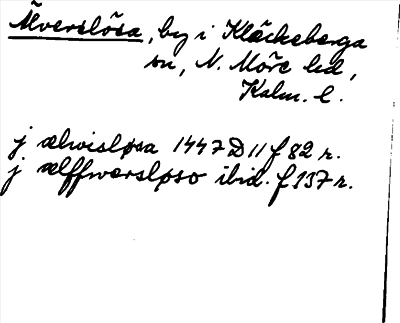 Älverslösa, by i Kläckeberga
sn, N. Möre hd,
Kalm. l.
j ælwisløsa 1447 D 11 f 82 r.
j ælffwærsløso ibid. f 137 r.